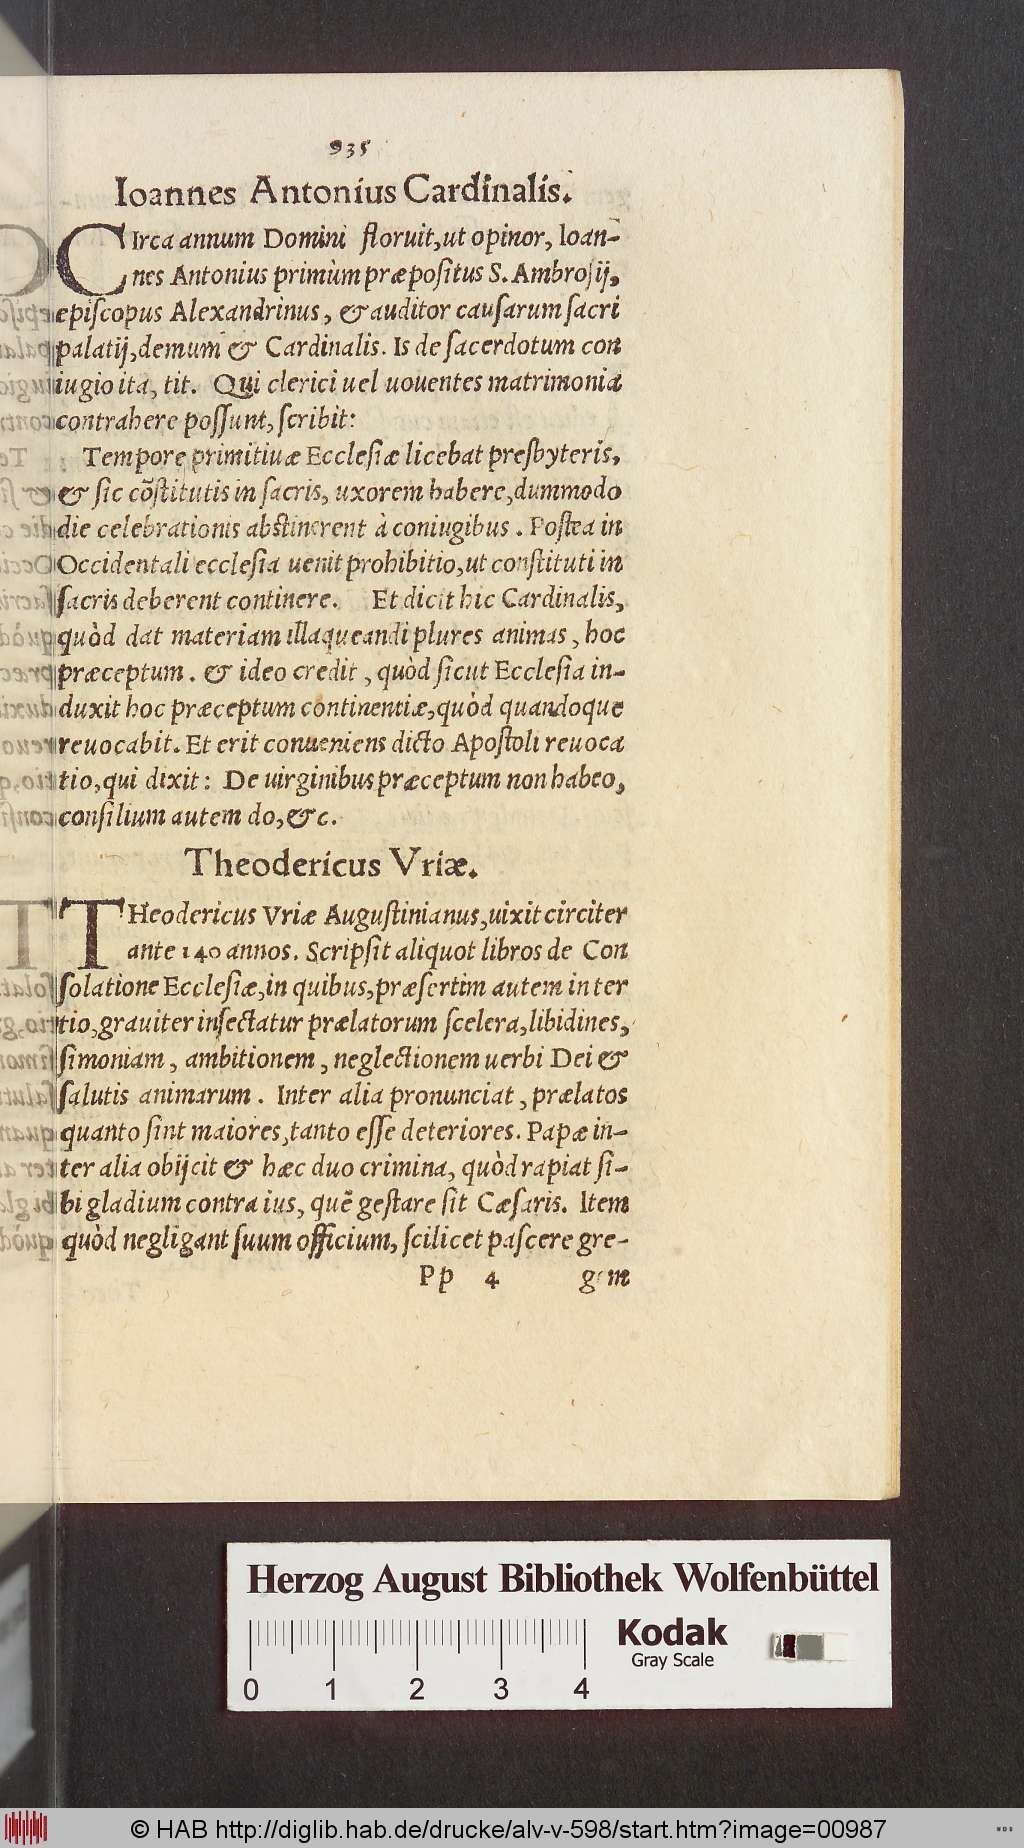 935
Ioannes Antonius Cardinalis.
CIrca annum Domini floruit, ut opinor, Ioan-
nes Antonius primùm præpositus S. Ambrosij,
episcopus Alexandrinus, & auditor causarum sacri
palatij, demum & Cardinalis. Is de sacerdotum con
iugio ita, tit. Qui clerici uel uouentes matrimonia
contrahere possunt, scribit:
Tempore primitiuæ Ecclesiæ licebat presbyteris,
& sic cõstitutis in sacris, uxorem habere, dummodo
die celebrationis abstinerent à coniugibus. Postea in
Occidentali ecclesia uenit prohibitio, ut constituti in
sacris deberent continere. Et dicit hic Cardinalis,
quòd dat materiam illaqueandi plures animas, hoc
præceptum. & ideo credit, quòd sicut Ecclesia in-
duxit hoc præceptum continentiæ, quòd quandoque
reuocabit. Et erit conueniens dicto Apostoli reuoca
tio, qui dixit: De uirginibus præceptum non habeo,
consilium autem do, &c.
Theodericus Vriæ.
THeodericus Vriæ Augustinianus, uixit circiter
ante 140 annos. Scripsit aliquot libros de Con
solatione Ecclesiæ, in quibus, præsertim autem in ter
tio, grauiter insectatur prælatorum scelera, libidines,
simoniam, ambitionem, neglectionem uerbi Dei &
salutis animarum. Inter alia pronunciat, prælatos
quanto sint maiores, tanto esse deteriores. Papæ in-
ter alia obijcit & hæc duo crimina, quòd rapiat si-
bi gladium contra ius, quẽ gestare sit Cæsaris. Item
quòd negligant suum officium, scilicet pascere gre-
Pp 4 gem
Herzog August Bibliothek Wolfenbüttel
Kodak
Gray Scale
0 1 2 3 4
© HAB http://diglib.hab.de/drucke/alv-v-598/start.htm?image=00987